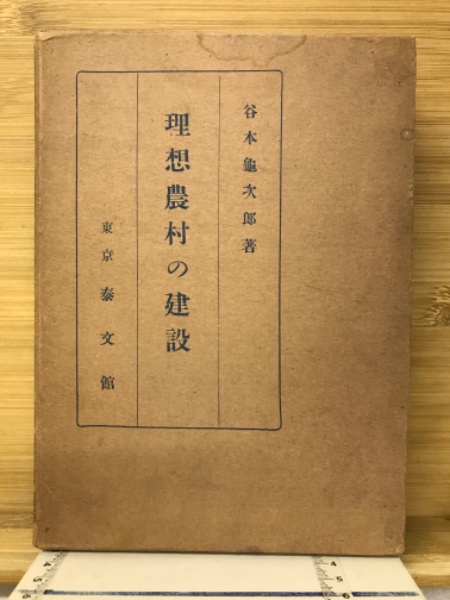 谷本亀次郎著
理想農村の建設
東京 泰文館